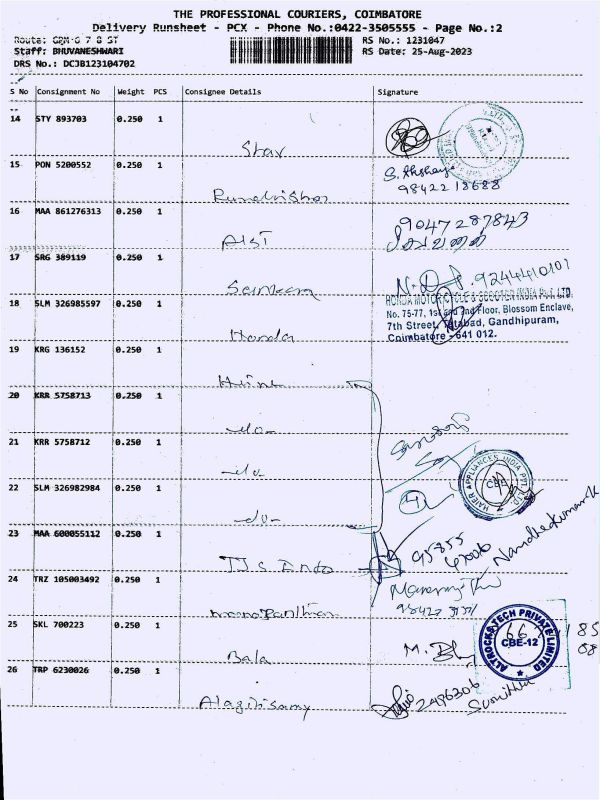 THE PROFESSIONAL COURIERS, COIMBATORE
Delivery Runsheet - PCX - Phone No.:0422-3505555 - Page No.:2
Route: GPM-6 7 8 ST
RS No.: 1231047
Staff: BHUVANESHWARI
RS Date: 25-Aug-2023
DRS No.: DCJB123104702
S No Consignment No Weight PCS Consignee Details Signature
14 STY 893703 0.250 1
Star
15 PON 5200552 0.250 1
S. Akshaya
98422 18688
16 MAA 861276313 0.250 1
90472 87843
AIST
17 SRG 389119 0.250 1
9244410101
18 SLM 326985597 0.250 1
HONDA MOTORCYCLE & SCOOTER INDIA PVT. LTD.
No. 75-77, 1st and 2nd Floor, Blossom Enclave,
7th Street, Tatabad, Gandhipuram,
Coimbatore - 641 012.
Honda
19 KRG 136152 0.250 1
20 KRR 5758713 0.250 1
-do-
21 KRR 5758712 0.250 1
-do-
22 SLM 326982984 0.250 1
HAIER APPLIANCES INDIA PVT. LTD.
CBE
4
-do-
23 MAA 600055112 0.250 1
Nandhakumar.K
95855
24 TRZ 105003492 0.250 1
25 SKL 700223 0.250 1
ALTROCKS TECH PRIVATE LIMITED
CBE-12
Bala
26 TRP 6230026 0.250 1
2496306
Sumithra
Alagirisamy